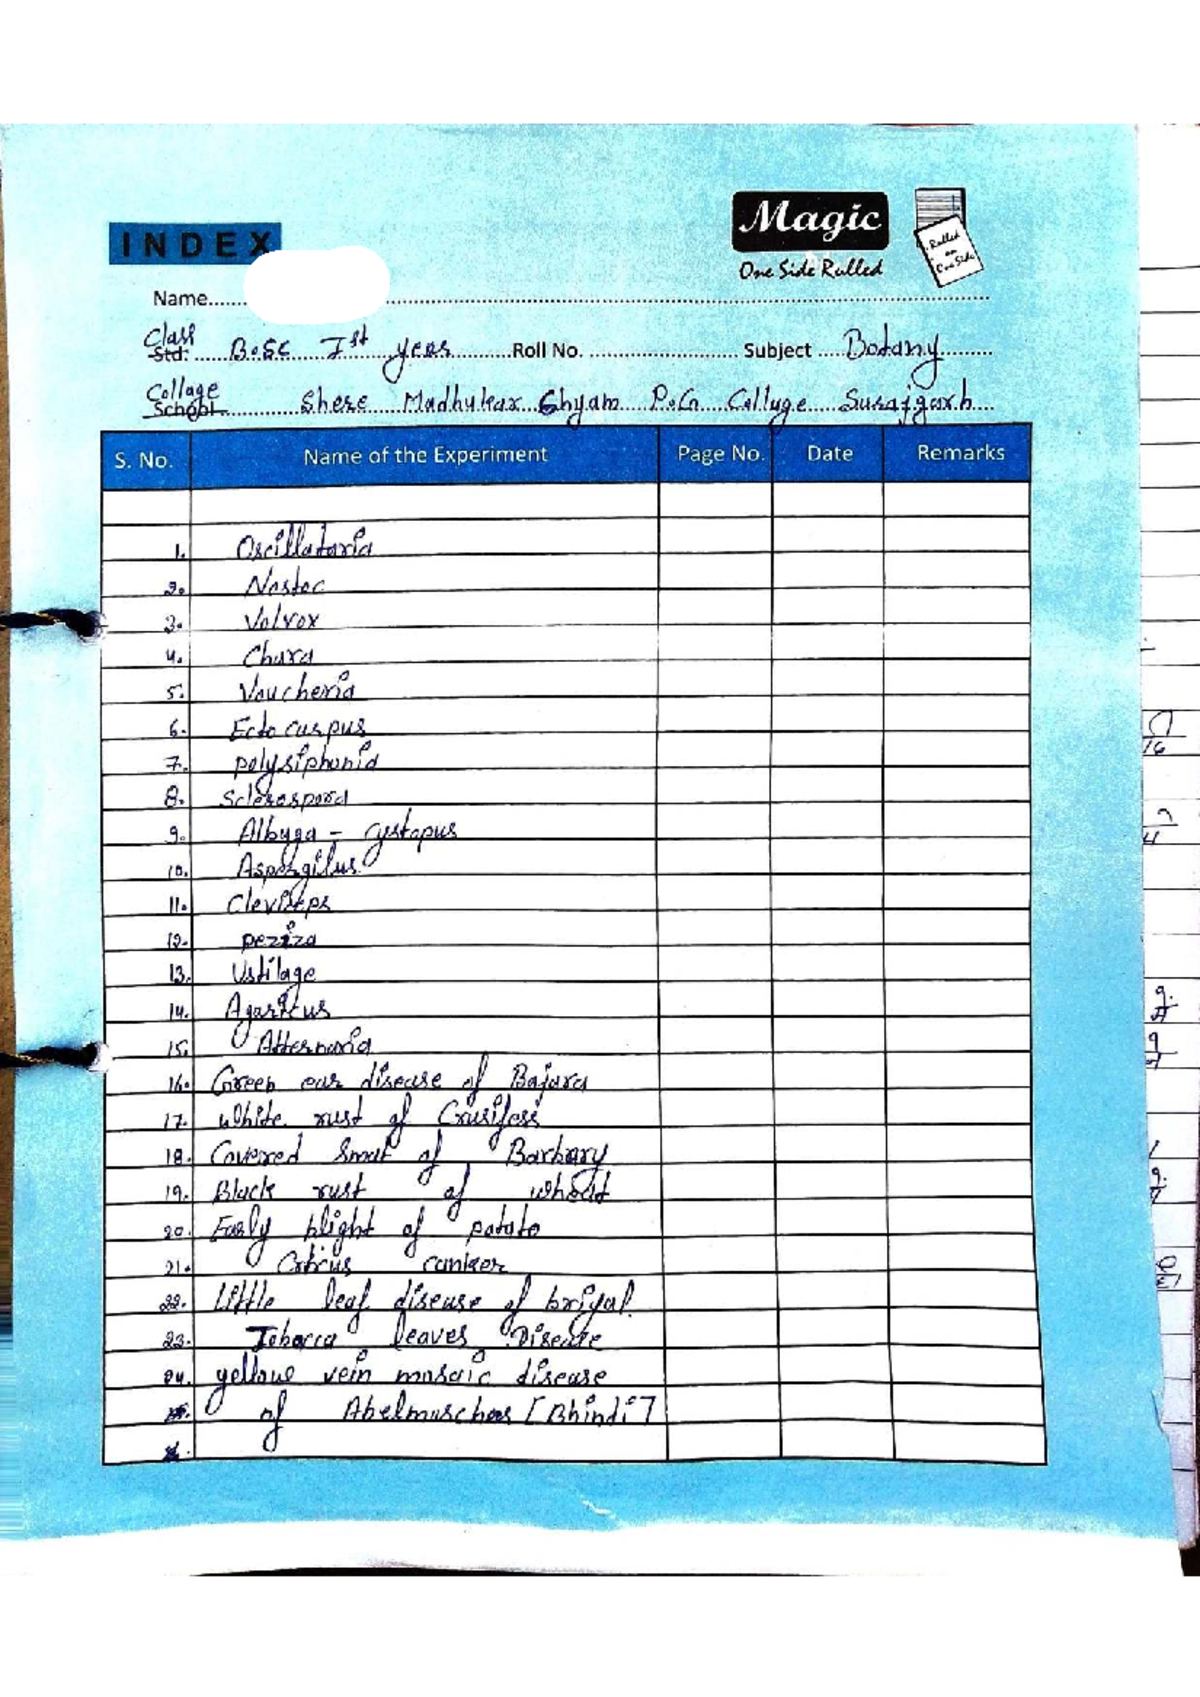 INDEX
Magic
One Side Rulled
Rulled on One Side
Name
Class
Std: B.Sc Ist year Roll No. Subject Botany
Collage
School Shree Madhukar Ghyam P.G Colluge Surajgarh
S. No. Name of the Experiment Page No. Date Remarks
1. Oscillataria
2. Nostoc
3. Volvox
4. Chara
5. Voucheria
6. Ectocarpus
7. polysiphonia
8. Sclerospora
9. Albyga - cystopus
10. Aspergilus
11. Cleviceps
12. peziza
13. Ustilage
14. Agaricus
15. Atternaria
16. Green ear disease of Bajara
17. White rust of Crusifess
18. Covered Smut of Barbary
19. Black rust of wheat
20. Early blight of potato
21. Citrus canker
22. Little leaf disease of brijal
23. Tobacca leaves Disease
24. yellow vein mosaic disease
of Abelmuschas [Bhindi]